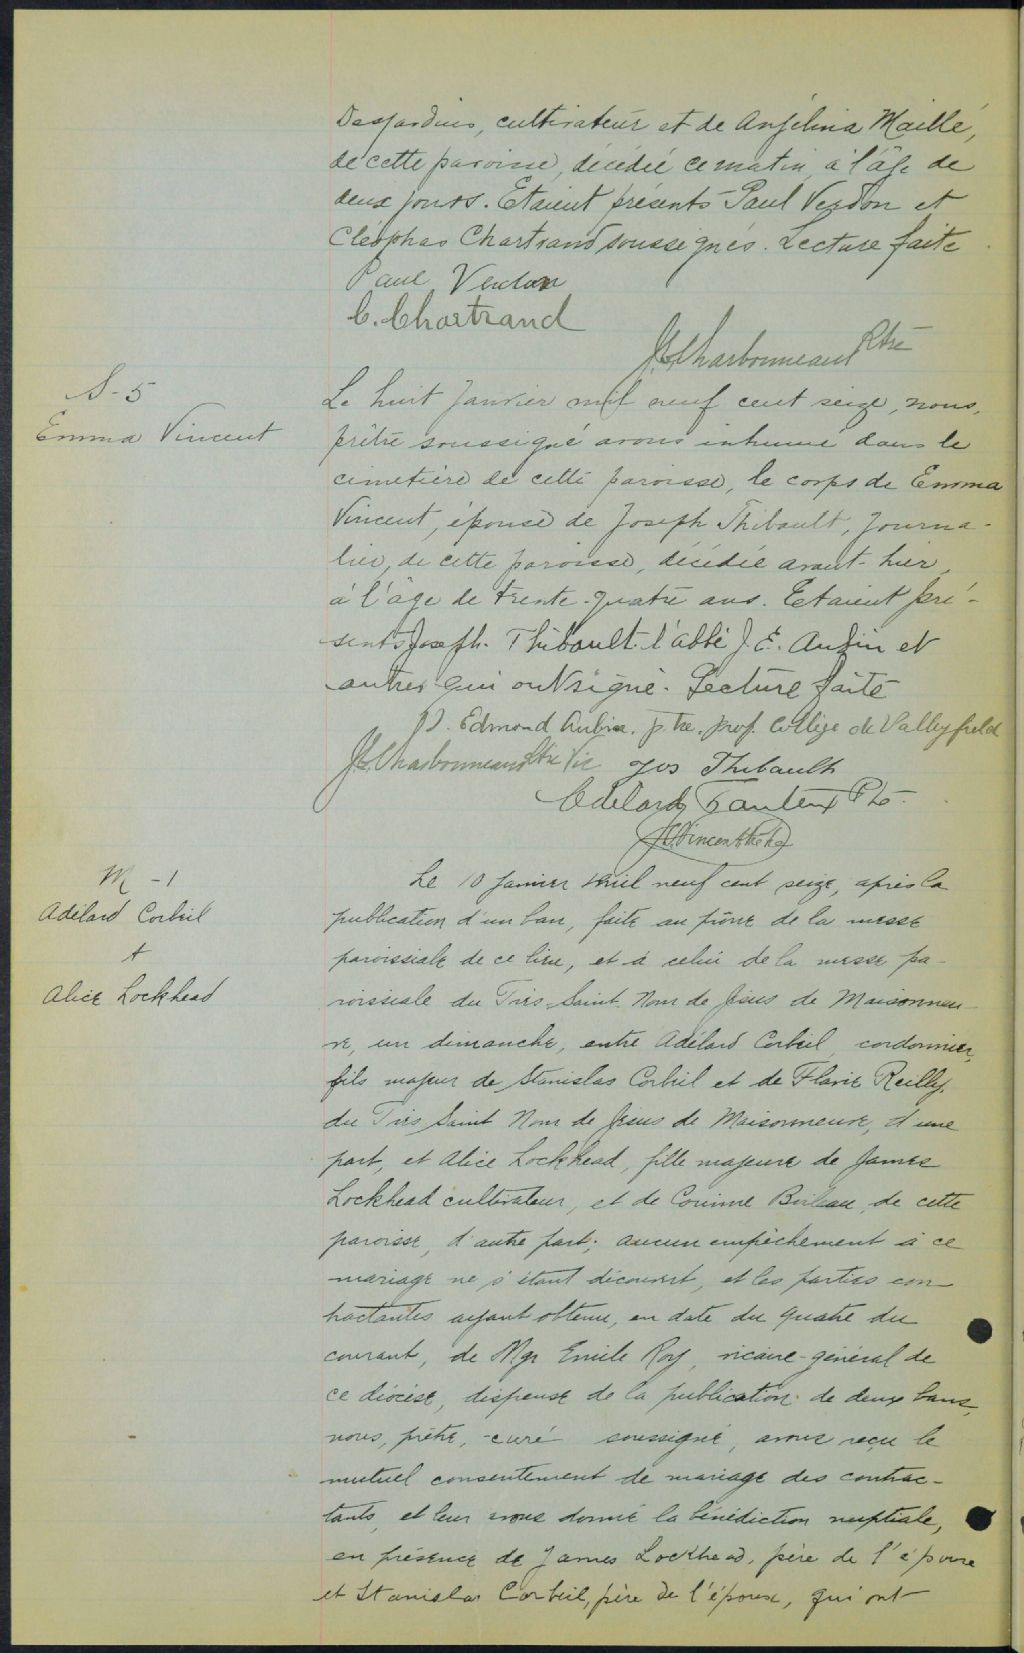 Desjardins, cultivateur et de Anjélina Maillé,
de cette paroisse, décédé ce matin, à l'âge de
deux jours. Etaient présents Paul Verdon et
Cléophas Chartrand soussignés. Lecture faite
Paul Verdon
C. Chartrand
J. Charbonneau Ptre
S-5
Emma Vincent
Le huit Janvier mil neuf cent seize, nous,
prêtre soussigné avons inhumé dans le
cimetière de cette paroisse, le corps de Emma
Vincent, épouse de Joseph Thibault, Journa-
lier, de cette paroisse, décédée avant-hier,
à l'âge de trente-quatre ans. Etaient pré-
sents Joseph Thibault l'abbé J. E. Aubin et
autres qui ont signé. Lecture faite
J. Edmond Aubin. ptre. prof. Collège de Valleyfield
Charbonneau Ptre Vic Jos Thibault
Adélard Fauteux Ptr.
Vincent
M-1
Adélard Corbeil
+
Alice Lockhead
Le 10 Janvier Mil neuf cent seize, après la
publication d'un ban, faite au prône de la messe
paroissiale de ce lieu, et à celui de la messe pa-
roissiale du Très Saint Nom de Jésus de Maisonneu
ve, un dimanche, entre Adélard Corbeil, cordonnier,
fils majeur de Stanislas Corbeil et de Flavie Reilly,
du Très Saint Nom de Jésus de Maisonneuve, d'une
part, et Alice Lockhead, fille majeure de James
Lockhead cultivateur, et de Corinne Boileau, de cette
paroisse, d'autre part; aucun empêchement à ce
mariage ne s'étant découvert, et les parties con
tractantes ayant obtenu, en date du quatre du
courant, de Mgr Emile Roy, vicaire-général de
ce diocèse, dispense de la publication de deux bans,
nous, prêtre, curé soussigné, avons reçu le
mutuel consentement de mariage des contrac-
tants, et leur avons donné la bénédiction nuptiale,
en présence de James Lockhead, père de l'épouse
et Stanislas Corbeil, père de l'époux, qui ont